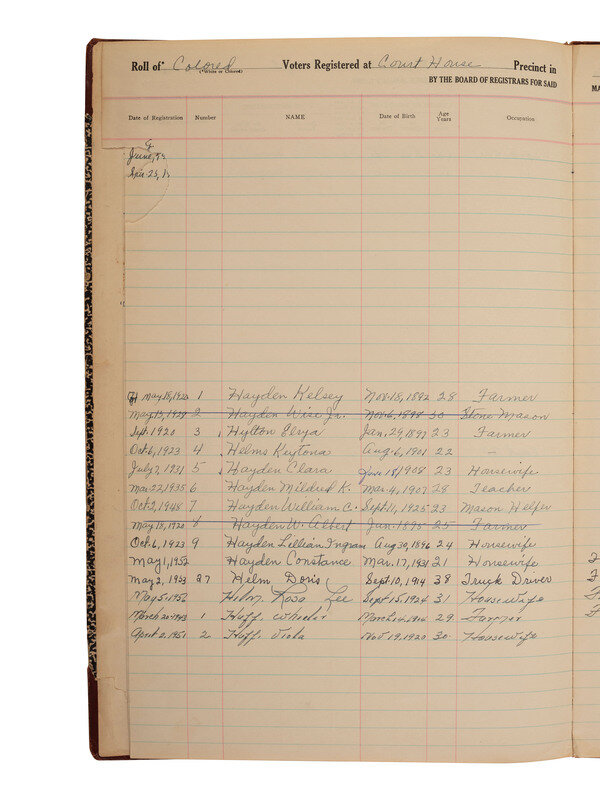 Roll of* Colored Voters Registered at Court House Precinct in
(*White or Colored)
BY THE BOARD OF REGISTRARS FOR SAID
MA
Date of Registration Number NAME Date of Birth Age Years Occupation
June,
25,
May 18, 1920 1 Hayden Kelsey Nov. 18, 1892 28 Farmer
May 15, 1929 2 Hayden Wise Jr. Nov. 6, 1898 30 Stone Mason
Sept. 1920 3 Hylton Elrya Jan. 29, 1897 23 Farmer
Oct. 6, 1923 4 Helms Keytona Aug. 6, 1901 22 —
July 7, 1931 5 Hayden Clara June 18, 1908 23 Housewife
Mar. 22, 1935 6 Hayden Mildred K. Mar. 4, 1907 28 Teacher
Oct. 2, 1948 7 Hayden William C. Sept. 11, 1925 23 Mason Helper
May 18, 1920 8 Hayden W. Albert Jan. 1895 25 Farmer
Oct. 6, 1923 9 Hayden Lillian Ingram Aug 30, 1896 24 Housewife
May 1, 1952 Hayden Constance Mar. 17, 1931 21 Housewife
May 2, 1953 27 Helm Doris Sept. 10, 1914 38 Truck Driver
May 5, 1956 Helm. Rosa Lee Sept. 15, 1924 31 Housewife
March 20, 1943 1 Huff, Wheeler March 14, 1914 29 Farmer
April 2, 1951 2 Huff, Viola Nov 19, 1920 30 Housewife